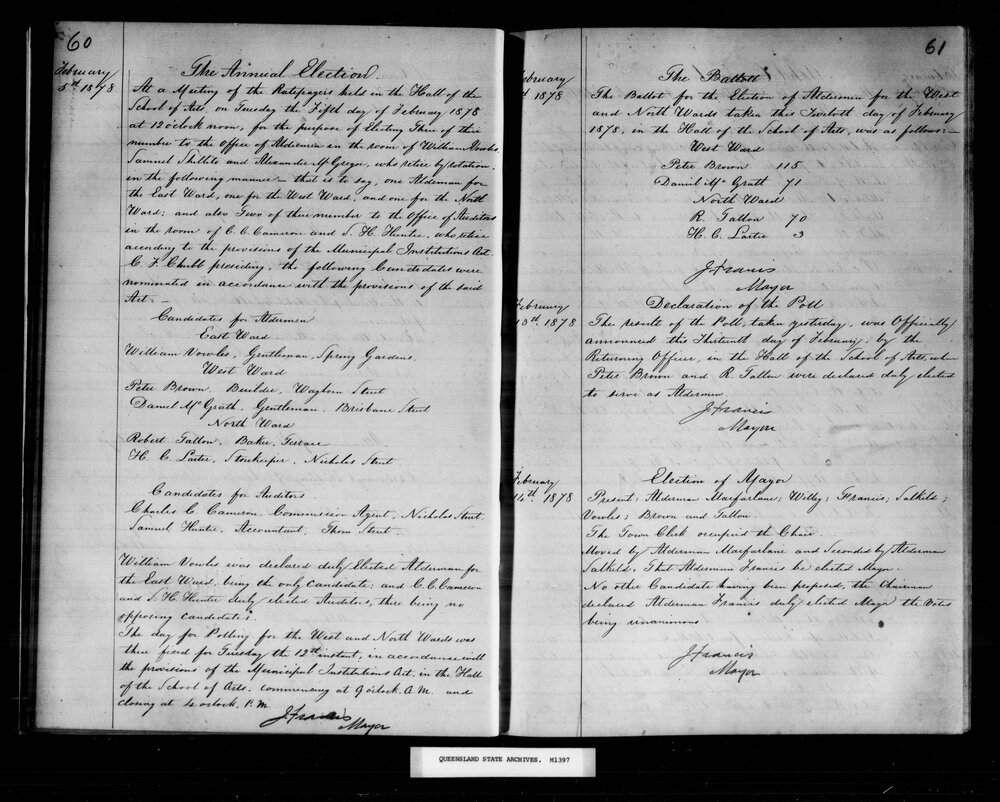 60
February
5th 1878
The Annual Election
At a Meeting of the Ratepayers held in the Hall of the
School of Arts, on Tuesday the Fifth day of February 1878
at 12 o'clock noon, for the purpose of Electing Three of their
number to the Office of Aldermen in the room of William Vowles,
Samuel Shillito and Alexander McGregor, who retire by rotation,
in the following manner – that is to say, one Alderman for
the East Ward, one for the West Ward, and one for the North
Ward; and also Two of their number to the Office of Auditors
in the room of C. C. Cameron and S. H. Hunter, who retire
according to the provisions of the Municipal Institutions Act.
C. F. Chubb presiding, the following Candidates were
nominated in accordance with the provisions of the said
Act: –
Candidates for Aldermen
East Ward
William Vowles, Gentleman, Spring Gardens.
West Ward
Peter Brown, Builder, Waghorn Street
Daniel McGrath, Gentleman, Brisbane Street
North Ward
Robert Tallon, Baker, Terrace
H. C. Carter, Storekeeper, Nicholas Street
Candidates for Auditors
Charles C. Cameron, Commission Agent, Nicholas Street.
Samuel Hunter, Accountant, Thorn Street
William Vowles was declared duly Elected Alderman for
the East Ward, being the only candidate; and C. C. Cameron
and S. H. Hunter duly elected Auditors, there being no
opposing candidates.
The day for Polling for the West and North Wards was
then fixed for Tuesday the 12th instant, in accordance with
the provisions of the Municipal Institutions Act, in the Hall
of the School of Arts, commencing at 9 o'clock A.M. and
closing at 4 o'clock, P.M.
J Francis
Mayor
61
February
1878
The Ballot
The Ballot for the Election of Aldermen for the West
and North Wards taken this Twelfth day of February
1878, in the Hall of the School of Arts, was as follows: –
West Ward
Peter Brown 115
Daniel McGrath 71
North Ward
R. Tallon 70
H. C. Carter 3
J Francis
Mayor
February
13th 1878
Declaration of the Poll
The results of the Poll, taken yesterday, was Officially
announced this Thirteenth day of February, by the
Returning Officer, in the Hall of the School of Arts, when
Peter Brown and R. Tallon were declared duly elected
to serve as Aldermen
J Francis
Mayor
February
14th 1878
Election of Mayor
Present: Aldermen Macfarlane; Willey; Francis; Salkeld;
Vowles; Brown and Tallon.
The Town Clerk occupied the Chair.
Moved by Alderman Macfarlane and Seconded by Alderman
Salkeld: That Alderman Francis be elected Mayor.
No other Candidate having been proposed, the Chairman
declared Alderman Francis duly elected Mayor the Votes
being unanimous
J Francis
Mayor
QUEENSLAND STATE ARCHIVES. M1397